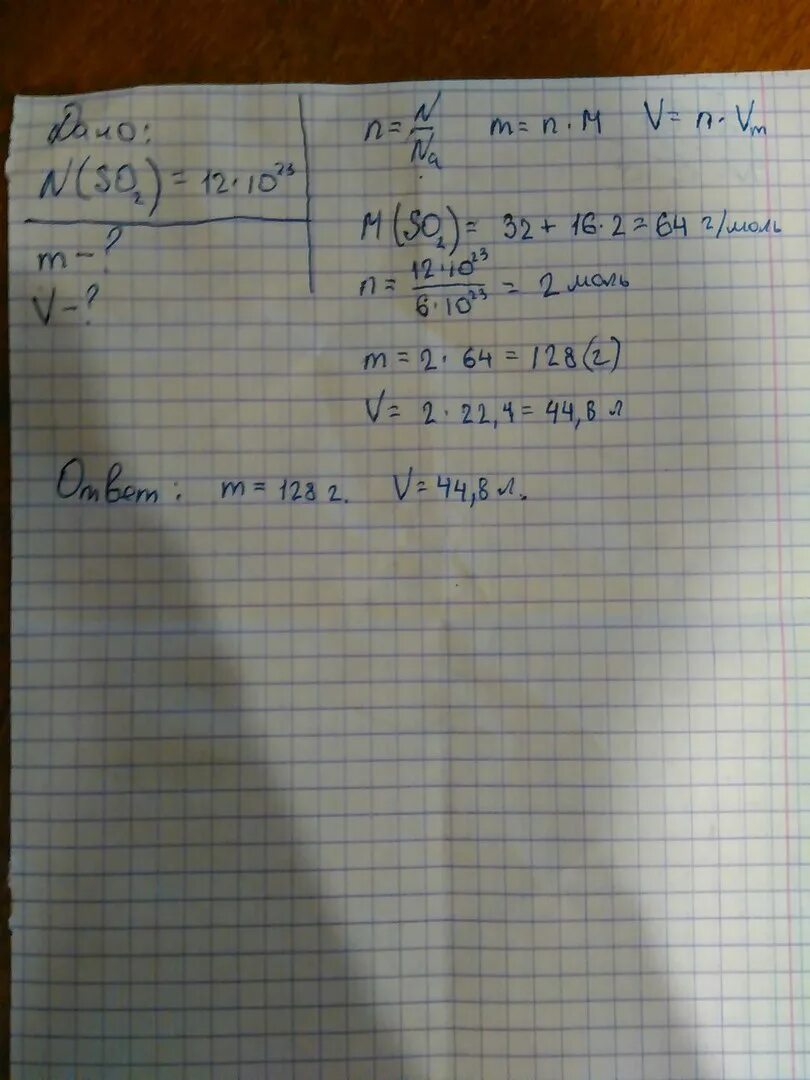 Дано:
N(SO₂) = 12·10²³
m – ?
V – ?
n = N/Nₐ m = n · M V = n · Vₘ
M(SO₂) = 32 + 16·2 = 64 г/моль
n = 12·10²³/6·10²³ = 2 моль
m = 2 · 64 = 128 (г)
V = 2 · 22,4 = 44,8 л
Ответ: m = 128 г. V = 44,8 л.